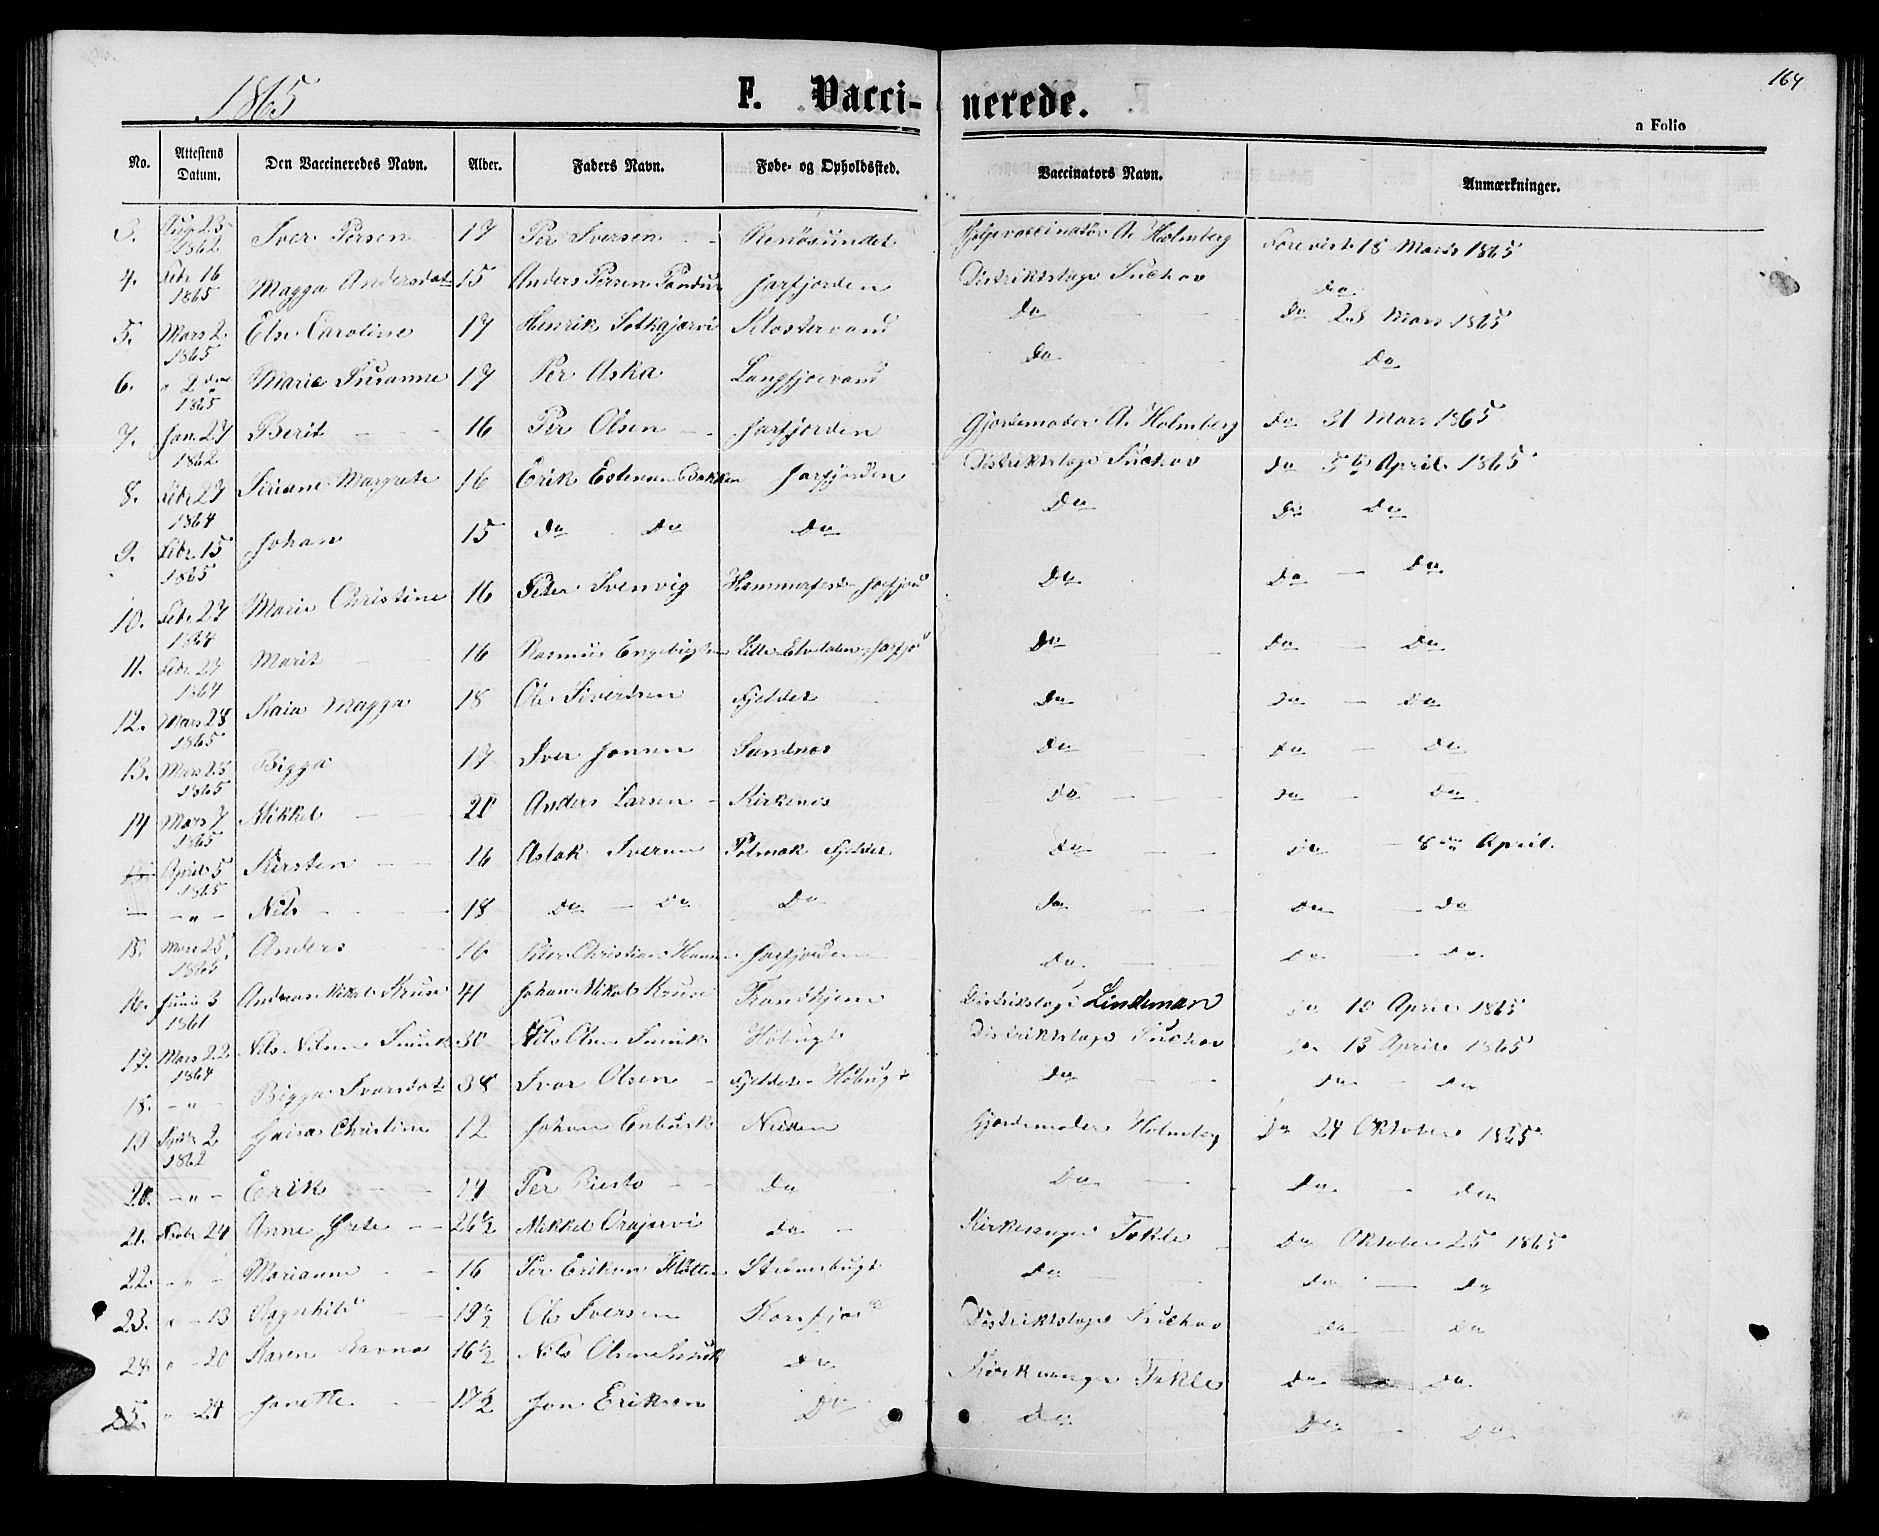 164
1865
F. Vacci- nerede.
a Folio
No. Attestens Datum. Den Vaccineredes Navn. Alder. Faders Navn. Føde- og Opholdssted. Vaccinators Navn. Anmærkninger.
1862 Iver Persen 17 Per Iversen Renøsundet Hjelpevaccinatør A. Holmberg Forevist 18 Mars 1865
4. Febr 16 1865 Magga Andersdatr 15 Anders Persen Jarfjorden Distriktslæge Suchov Do
5. Mars 2 1865 Else Caroline 17 Henrik Klostervand Do Do 28 Mars 1865
6. " 2den 1865 Marie Susanne 17 Per Aska Langfjorvand Do Do
7. Jan. 27 1862 Berit 16 Per Olsen Jarfjorden Gjordemoder A. Holmberg Do 31 Mars 1865
8. Febr 27 1864 Margrete 16 Erik Estensen Bakken Jarfjorden Distriktslæge Suchov Do 5te April 1865
9. Febr. 15 1865 Johan 15 Do Do Do Do Do Do
10. Febr 27 1864 Marie Christine 16 Peter Svenvig Hammerfest - Jarfjord Do Do — Do
11. Febr. 27 1864 Marit 16 Rasmus Engebrigtsen Lille Elvdalen, Jarfjord Do Do — Do
12. Mars 28 1865 Kaia Magga 18 Ole Sivertsen Fjeldet Do Do — Do
13. Mars 28 1865 Bigga 17 Iver Jonsen Sandnes Do Do — Do
14 Mars 7 1865 Mikkel 21 Anders Larsen Kirkenes Do Do — Do
April 5 1865 Kirsten 16 Aslak Iversen Polmak Fjeldet Do Do — 8de April
— — " — Nils 18 Do — Do Do Do Do — Do
15. Mars 25 1865 Anders 16 Peter Christian Jarfjorden Do Do — Do
16. Junii 3 1861 Andreas Nikolai Kruse 41 Johan Nikolai Kruse Trondhjem Distriktslæge Lindeman Do 10 April 1865
17. Mars 22 1864 Nils Nilsen 30 Nils Olsen Høbugt Distriktslæge Suchov Do 13 April 1865
18. — " — Bigga Ivarsdatr 38 Ivar Olsen Fjeldet - Høbugt Do Do — Do
19 2 1862 Christine 12 Johan Enbusk Neiden Gjordemoder Holmberg Do 24 Oktober 1865
20. — " — Erik 14 Per Do Do Do — Do
21. 24 Anne Grete 26½ Mikkel Orajervi Do Kirkesanger Fokle Do Oktober 25 1865
22. — " — Marianne 16 Per Eriksen Strømsbugt Do Do — Do
23. " — 13 Ragnhild 19½ Ole Iversen Korsfjord Distriktslæge Suchov Do — Do
24. " — 20 Karen Ravna 16½ Nils Olsen Do Kirkesanger Fokle Do Do
25. " 24 Janette 17½ Jon Eriksen Do Do Do — Do